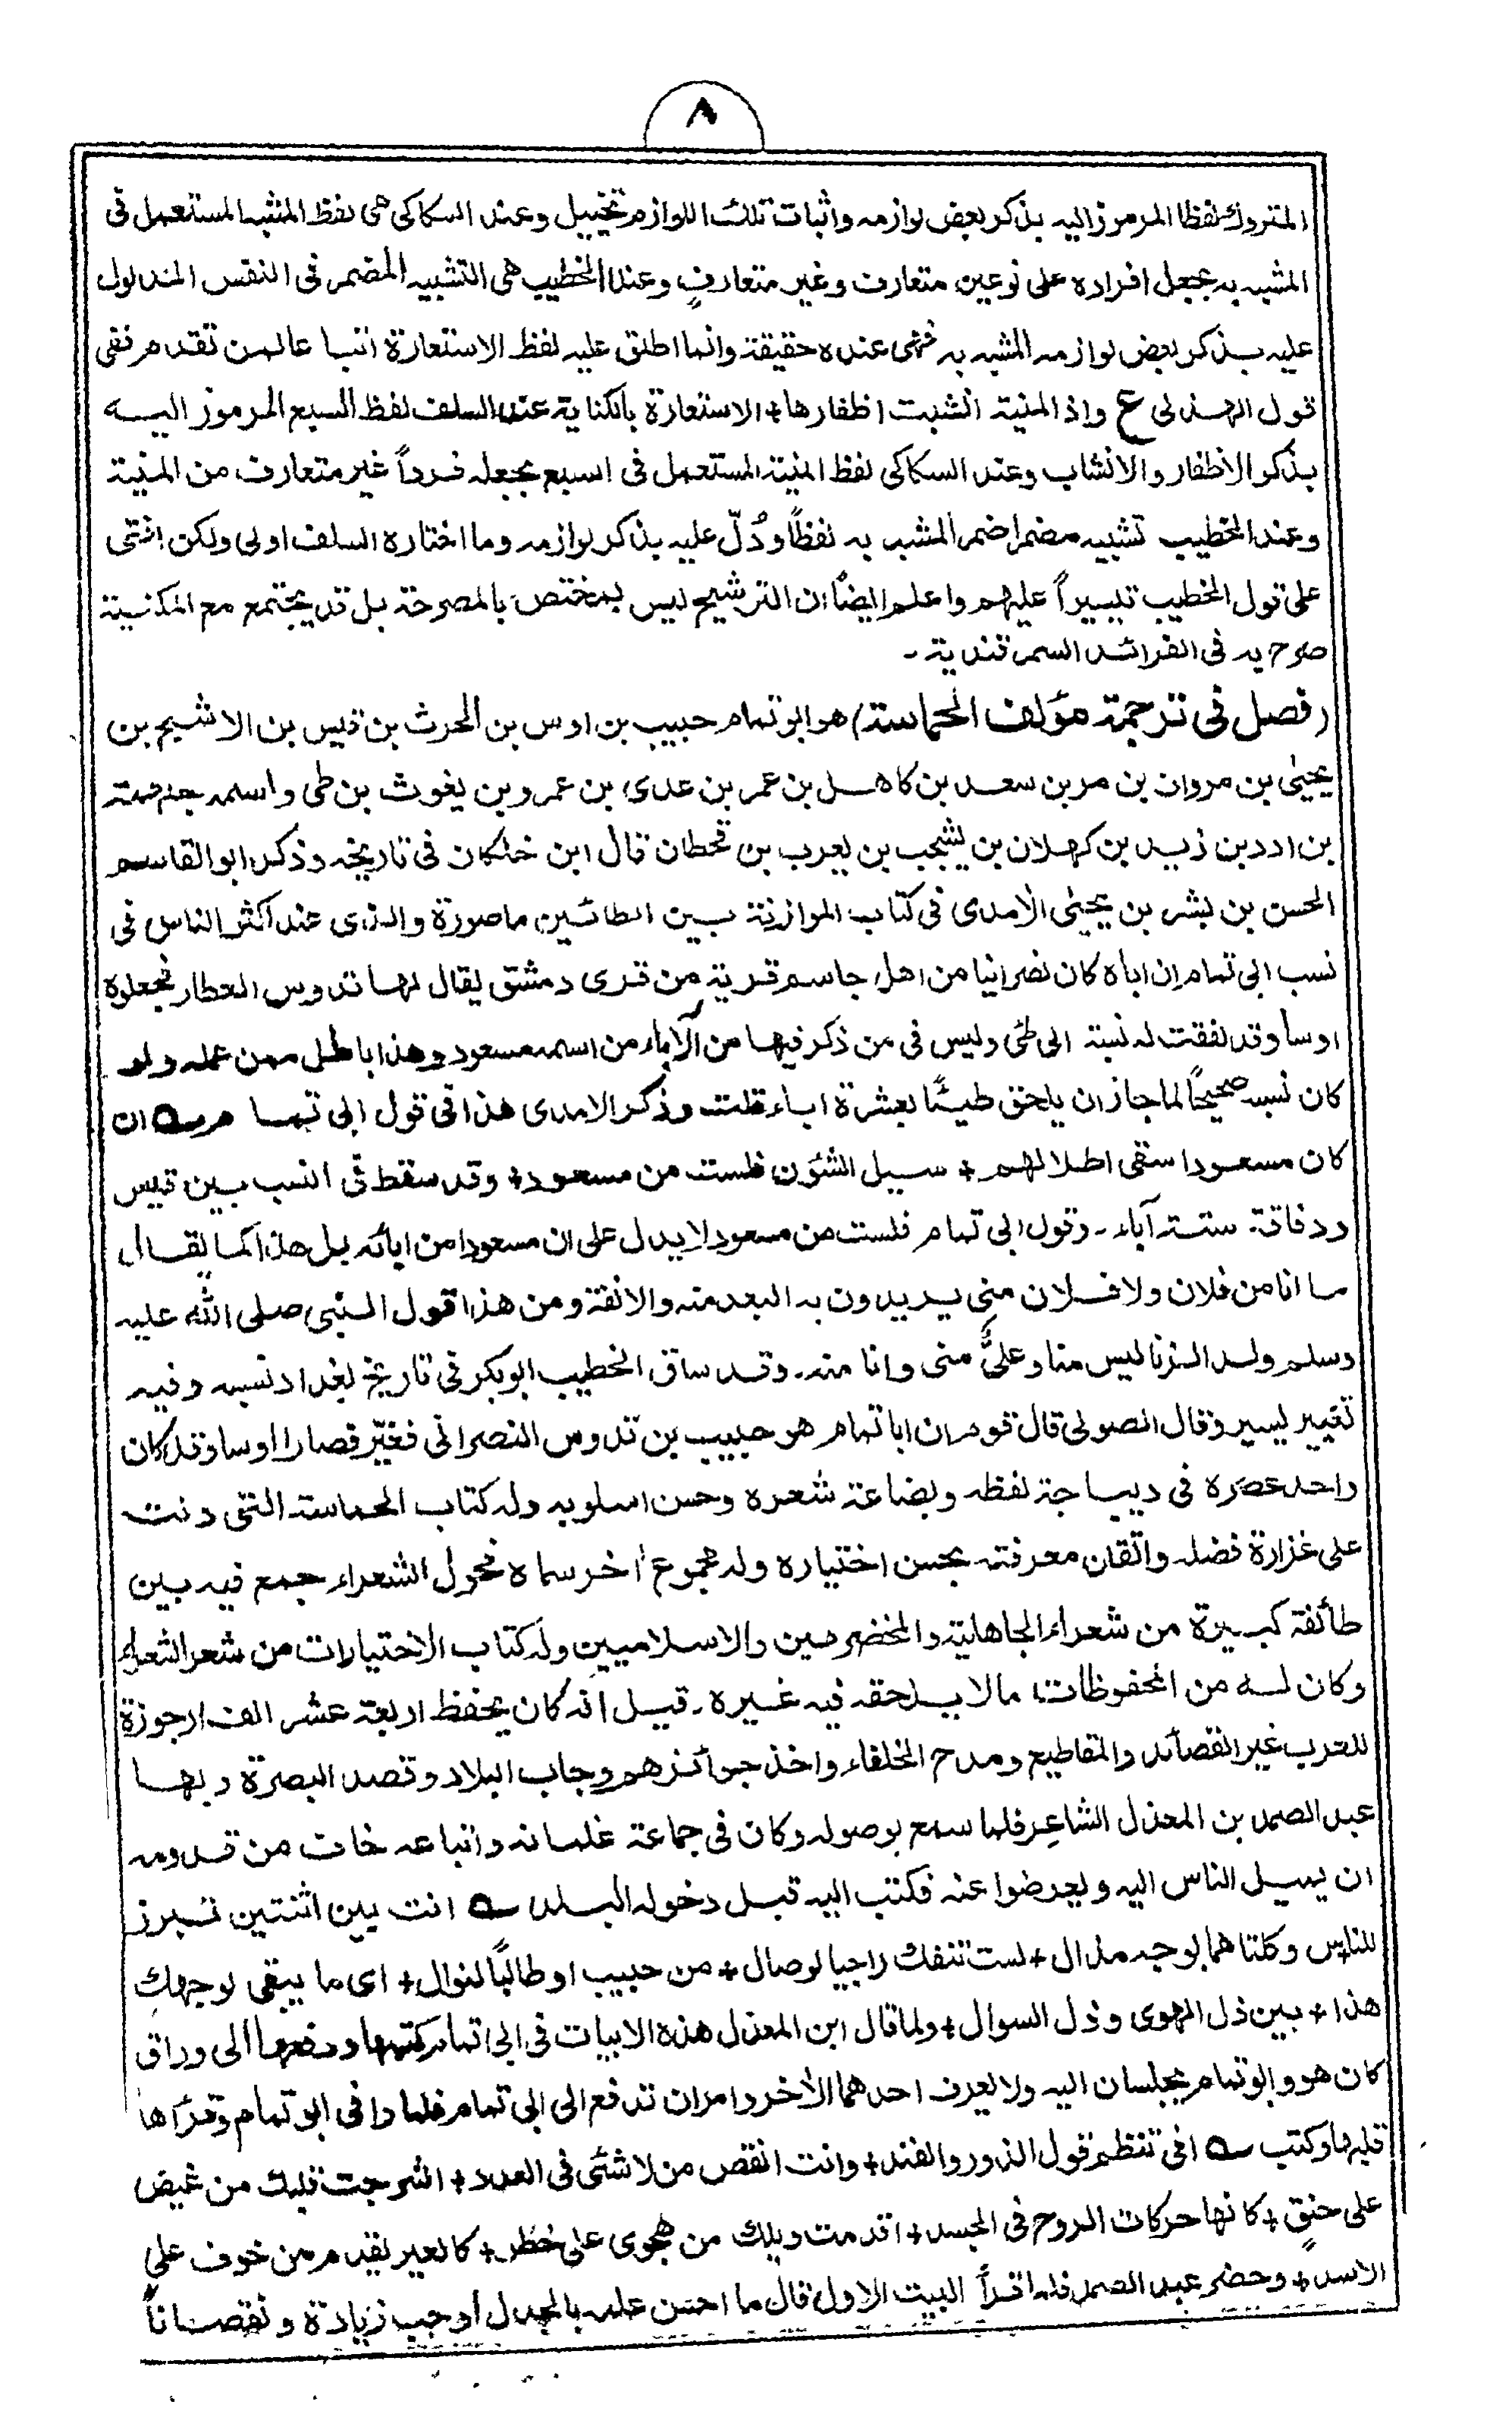 ٨
المتروك لفظا المرموز اليه بذكر بعض لوازمه واثبات تلك اللوازم تخييل وعند السكاكى هى لفظ المشبه المستعمل فى
المشبه به بجعل افراده على نوعين متعارف وغير متعارفٍ وعند الخطيب هى التشبيه المضمر فى النفس المدلول
عليه بذكر بعض لوازمه المشبه به فهى عنده حقيقة وانما اطلق عليه لفظ الاستعارة اتباعا لمن تقدم ففى
قول الهذلى ع واذ المنية انشبت اظفارها+ الاستعارة بالكناية عند السلف لفظ السبع المرموز اليه
بذكر الاظفار والانشاب وعند السكاكى لفظ المنية المستعمل فى السبع بجعله فرداً غير متعارف من المنية
وعند الخطيب تشبيه مضمر اضمر المشبه به لفظاً ودُلّ عليه بذكر لوازمه وما اختاره السلف اولى ولكن
على قول الخطيب تيسيراً عليهم واعلم ايضاً ان الترشيح ليس بمختص بالمصرحة بل قد يجتمع مع المكنية
صرح به فى الفرائد السمرقندية ـ
(فصل فى ترجمة مؤلف الحماسة) هو ابو تمام حبيب بن اوس بن الحرث بن قيس بن الاشيح بن
يحيىٰ بن مروان بن مر بن سعد بن كاهل بن عمر بن عدى بن عمرو بن يغوث بن طى واسمه جلهمة
بن ادد بن زيد بن كهلان بن يشجب بن يعرب بن قحطان قال ابن خلكان فى تاريخه وذكر ابو القاسم
الحسن بن بشر بن يحيىٰ الآمدى فى كتاب الموازنة بين الطائيين ما صورة والذى عند اكثر الناس فى
نسب ابى تمام ان اباه كان نصرانيا من اهل جاسم قرية من قرى دمشق يقال لها تدوس العطار فجعلوه
اوسا وقد لفقت له نسبة الى طئ وليس فى من ذكر فيها من الآباء من اسمه مسعود وهذا باطل ممن عمله ولو
كان نسبه صحيحاً لما جاز ان يلحق طيئا بعشرة اباء قلت وذكر الامدى هذا فى قول ابى تمام ؎ ان
كان مسعودا سقى اطلالهم + سبيل الشئون فلست من مسعود+ وقد سقط فى النسب بين قيس
ودفاقة ستة آباء ـ وقول ابى تمام فلست من مسعود لا يدل على ان مسعودا من ابائه بل هذا كما يقال
ما انا من فلان ولا فلان منى يريدون به البعد منه والانفة ومن هذا قول النبى صلى الله عليه
وسلم ولد الزنا ليس منا وعلىٌّ منى وانا منه ـ وقد ساق الخطيب ابو بكر فى تاريخ بغداد نسبه وفيه
تغيير يسير وقال الصولى قال قوم ان ابا تمام هو حبيب بن تدوس النصرانى فغيّر فصار اوسا وقد كان
واحد عصره فى ديباجة لفظه وبضاعة شعره وحسن اسلوبه وله كتاب الحماسة التى دلت
على غزارة فضله واتقان معرفته بحسن اختياره وله مجموع اٰخر سماه فحول الشعراء جمع فيه بين
طائفة كبيرة من شعراء الجاهلية والمخضرمين والاسلاميين وله كتاب الاختيارات من شعر الشعراء
وكان له من المحفوظات ما لا يلحقه فيه غيره ـ قيل انه كان يحفظ اربعة عشر الف ارجوزة
للعرب غير القصائد والمقاطيع ومدح الخلفاء واخذ جوائزهم وجاب البلاد وقصد البصرة وبها
عبد الصمد بن المعذل الشاعر فلما سمع بوصوله وكان فى جماعة غلمانه واتباعه خاف من قدومه
ان يميل الناس اليه ويعرضوا عنه فكتب اليه قبل دخوله البلد ؎ انت بين اثنتين تبرز
للناس وكلتاهما بوجه مذال + لست تنفك راجيا لوصال + من حبيب او طالباً لنوال + اى ما يبقى لوجهك
هذا + بين ذل الهوى وذل السوال + ولما قال ابن المعذل هذه الابيات فى ابى تمام كتبها ودفعها الى وراق
كان هو وابو تمام يجلسان اليه ولا يعرف احدهما الأخر وامر ان تدفع الى ابى تمام فلما وافى ابو تمام وقرأها
قلبها وكتب ؎ افى تنظم قول الزور والفند + وانت انقص من لا شئ فى العدد + اشرجت قلبك من غيض
على حنقٍ + كانها حركات الروح فى الجسد + اقدمت ويلك من هجوى على خطر + كالعير يقدم من خوف على
الاسد + وحضر عبد الصمد فلما قرأ البيت الاول قال ما احسن علمه بالجدل اوجب زيادة ونقصاناً